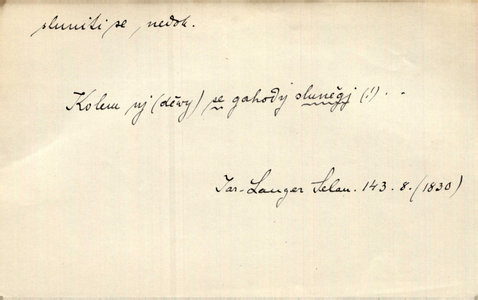 sluniti se, nedok.
Kolem nj (děwy) se gahody sluněgj (!) . .
Jar. Langer Selan. 143. 8. (1830)